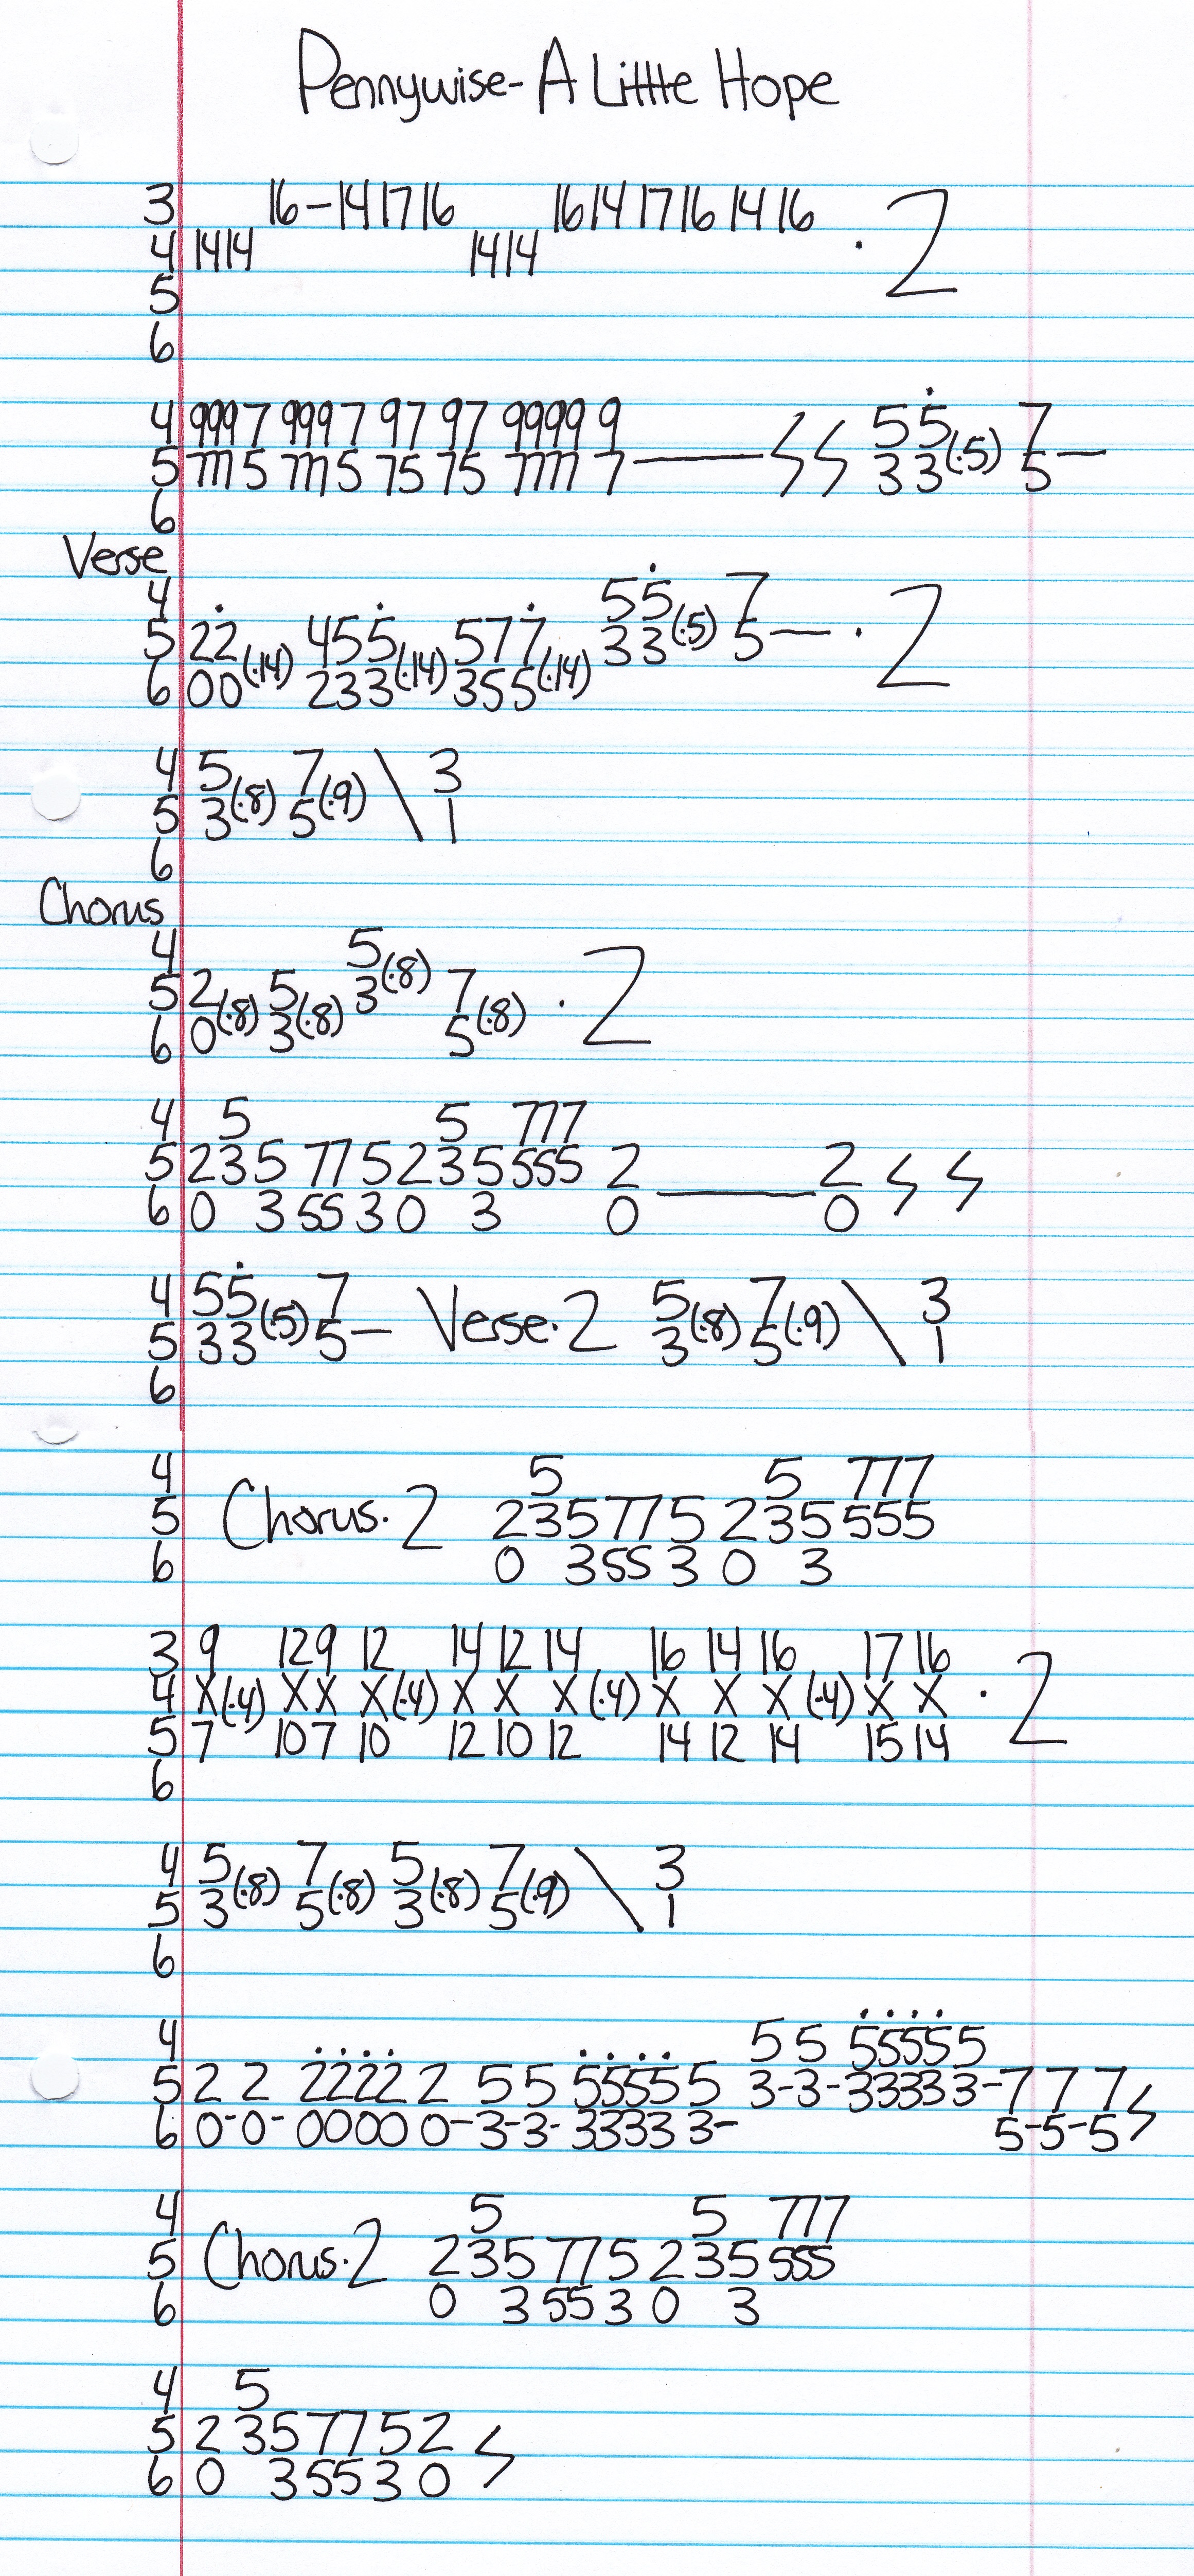 Pennywise- A Little Hope
3 16-14 17 16 16 14 17 16 14 16
4 14 14 14 14 · 2
5
6
4 999 7 999 7 97 97 9999 9 5 5 7
5 777 5 777 5 75 75 7777 7— 3 3(·5) 5—
6
Verse
4 5 5 7
5 22 455 577 3 3(·5) 5— · 2
6 00(·14) 233(·14) 355(·14)
4 5 7 \ 3
5 3(·8) 5(·9) 1
6
Chorus
4 5
5 2 5 3(·8) 7 · 2
6 0(·8) 3(·8) 5(·8)
4 5 5 777
5 2 3 5 77 5 2 3 5 555 2 2
6 0 3 55 3 0 3 0——0
4 5 5 7 5 7 \ 3
5 3 3(·5) 5— Verse·2 3(·8) 5(·9) 1
6
4 5 5 777
5 Chorus·2 2 3 5 77 5 2 3 5 555
6 0 3 55 3 0 3
3 9 12 9 12 14 12 14 16 14 16 17 16
4 X(·4) X X X(·4) X X X(·4) X X X(·4) X X · 2
5 7 10 7 10 12 10 12 14 12 14 15 14
6
4 5 7 5 7 \ 3
5 3(·8) 5(·8) 3(·8) 5(·9) 1
6
4 5 5 5555 5
5 2 2 2222 2 5 5 5555 5 3-3-3333 3-7 7 7
6 0-0-0000 0-3-3-3333 3- 5-5-5
4 5 5 777
5 Chorus·2 2 3 5 77 5 2 3 5 555
6 0 3 55 3 0 3
4 5
5 2 3 5 77 5 2
6 0 3 55 3 0